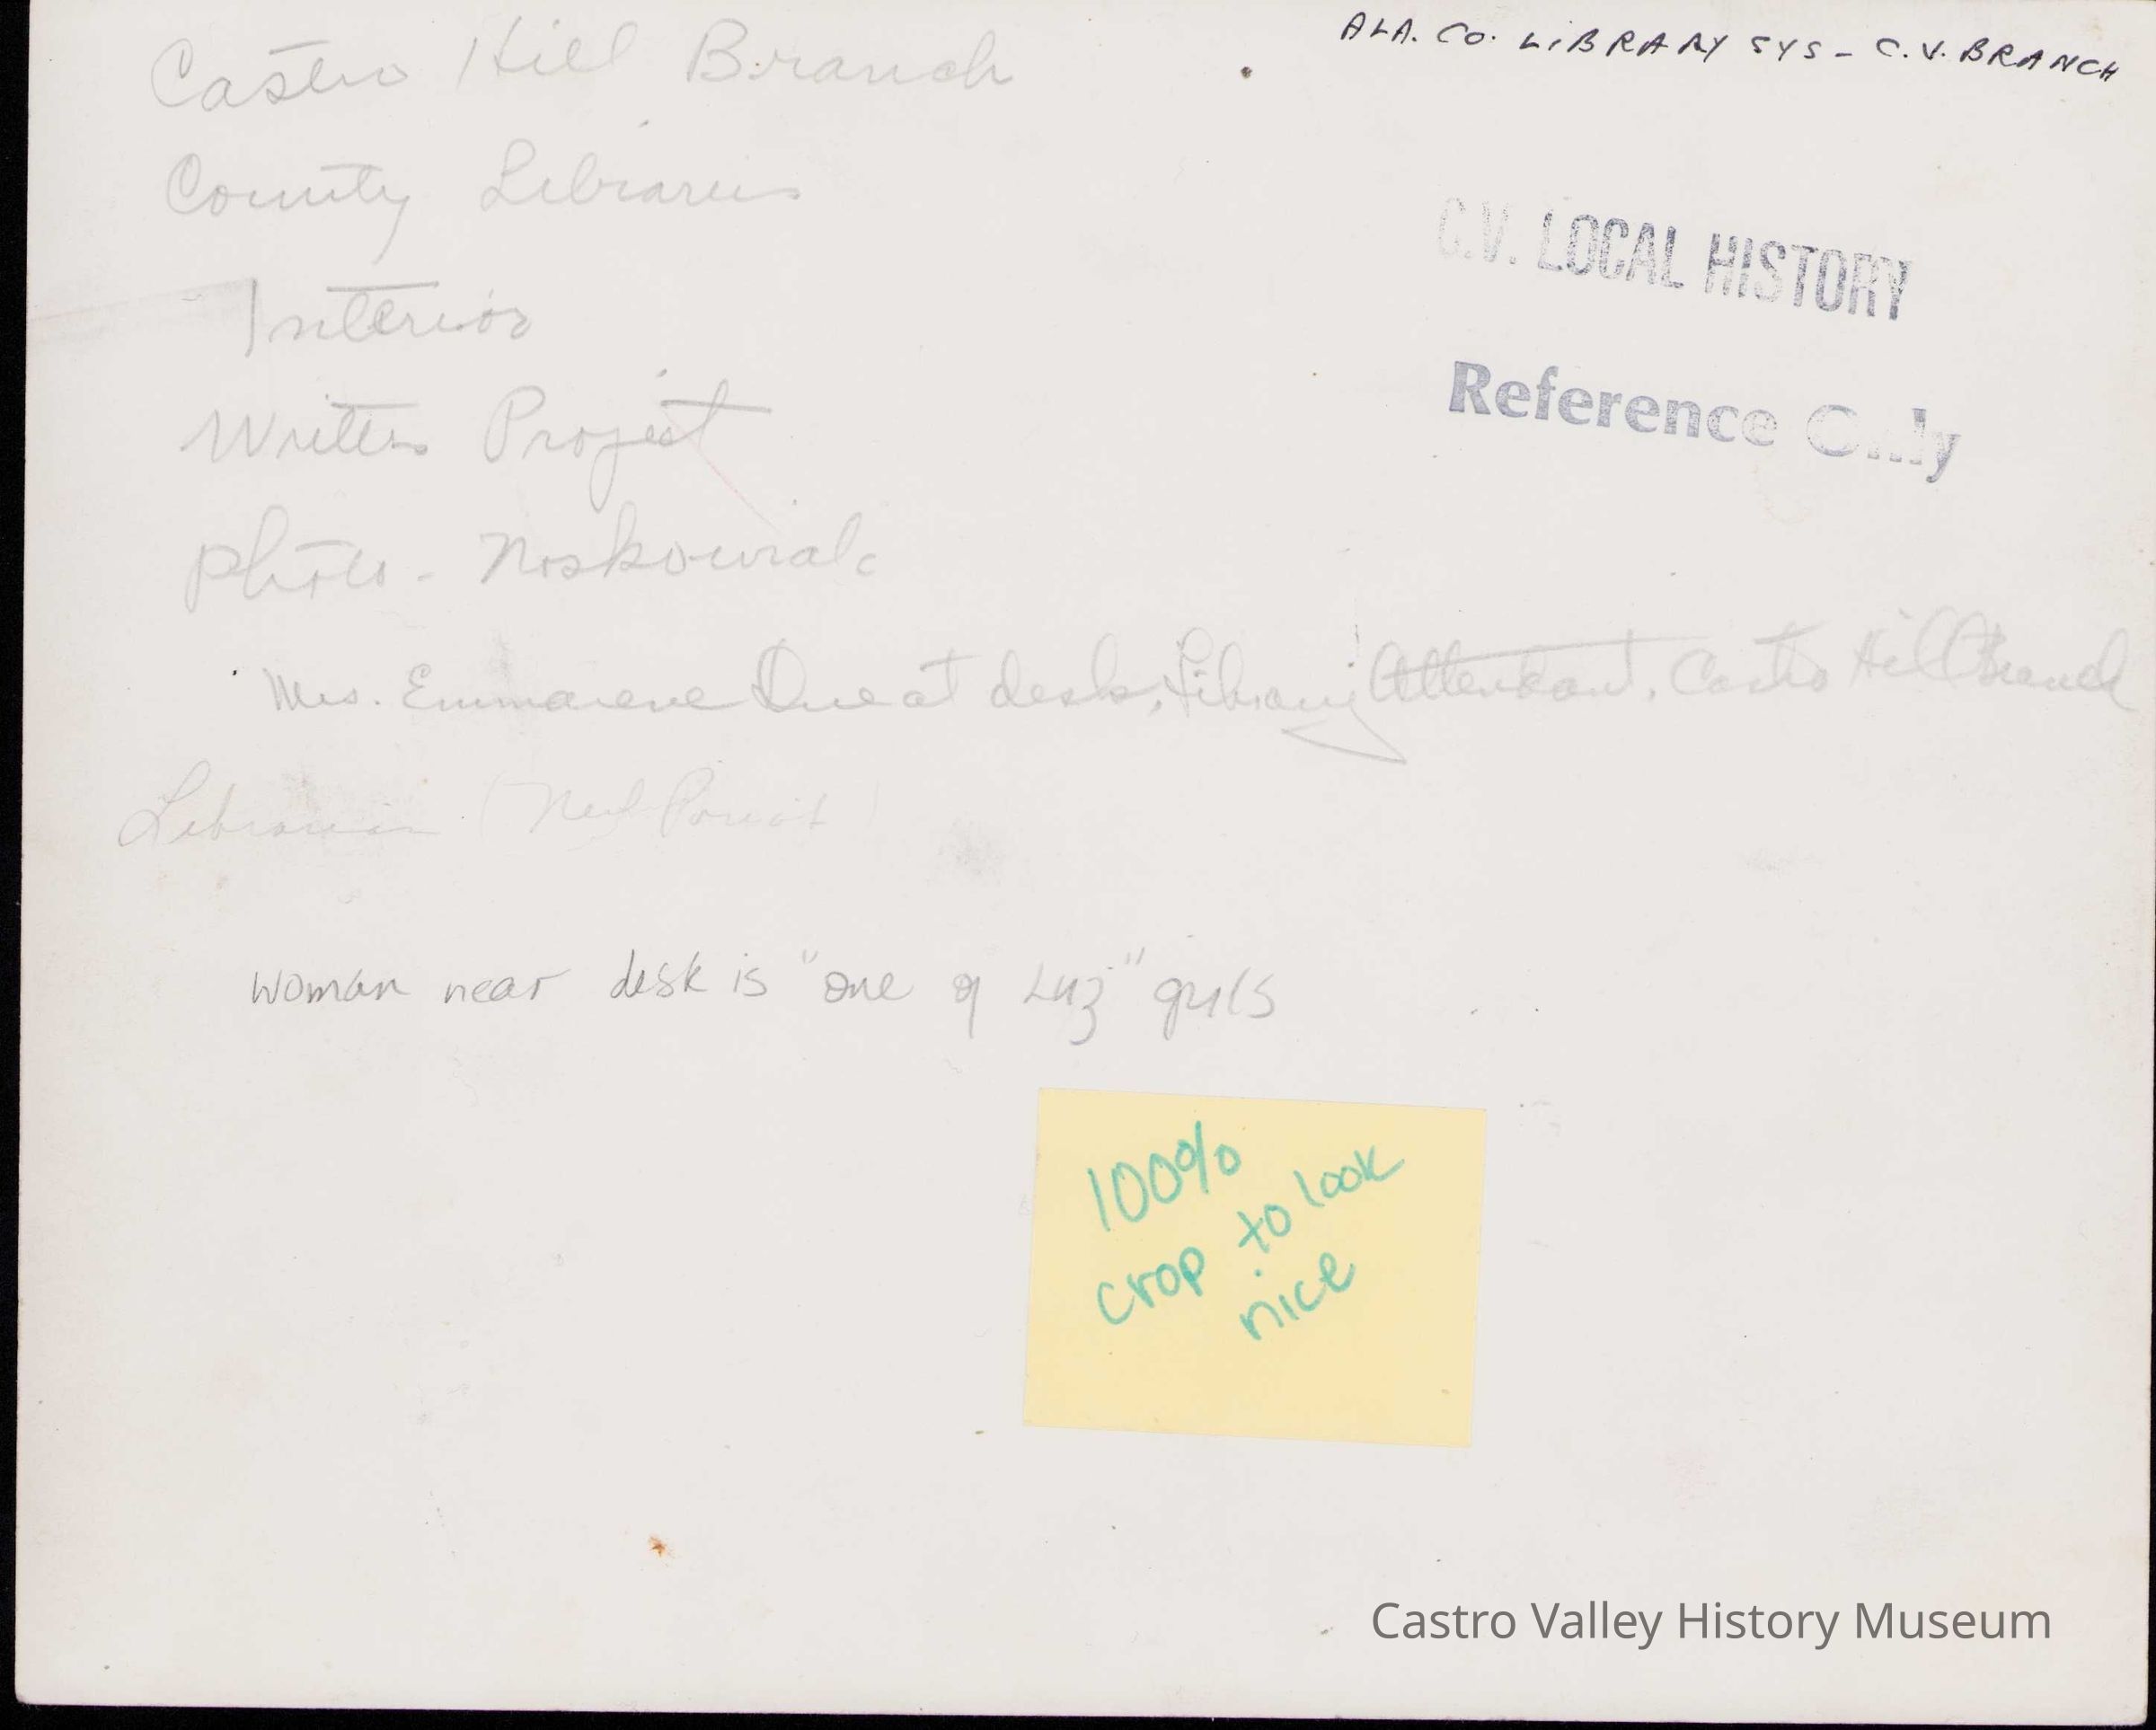 ALA. CO. LIBRARY SYS - C.V. BRANCH
Castro Hill Branch
County Libraries
C.V. LOCAL HISTORY
Interior
Reference Only
Writers Project
Photo - Noskowiak
Mrs. Emmarene at desk, Library Attendant, Castro Hill Branch
Librarian
woman near desk is "one of Luz" girls
100%
crop to look
nice
Castro Valley History Museum